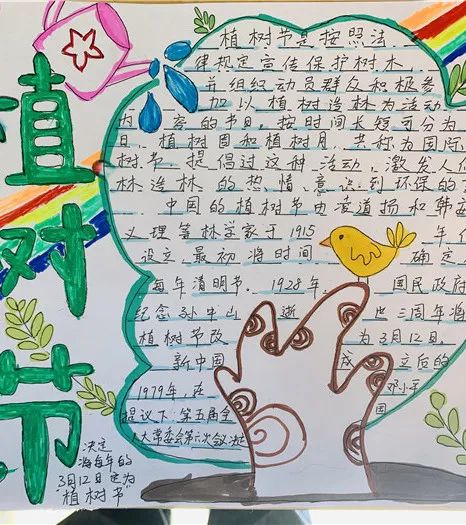 植树节
植树节是按照法
律规定宣传保护树木,
并组织动员群众积极参
加以植树造林为活动
内容的节日。按时间长短可分为
日、植树周和植树月,共称为国际
树节。提倡过这种活动,激发人们
林造林的热情、意识到环保的
中国的植树节由凌道扬和韩安
义理等林学家于1915年
设立,最初将时间确定
每年清明节。1928年,国民政府
纪念孙中山逝世三周年将
植树节改为3月12日。
新中国成立后的
1979年,在邓小平
提议下,第五届全国
人大常委会第六次会议
决定
将每年的
3月12日定为
"植树节"